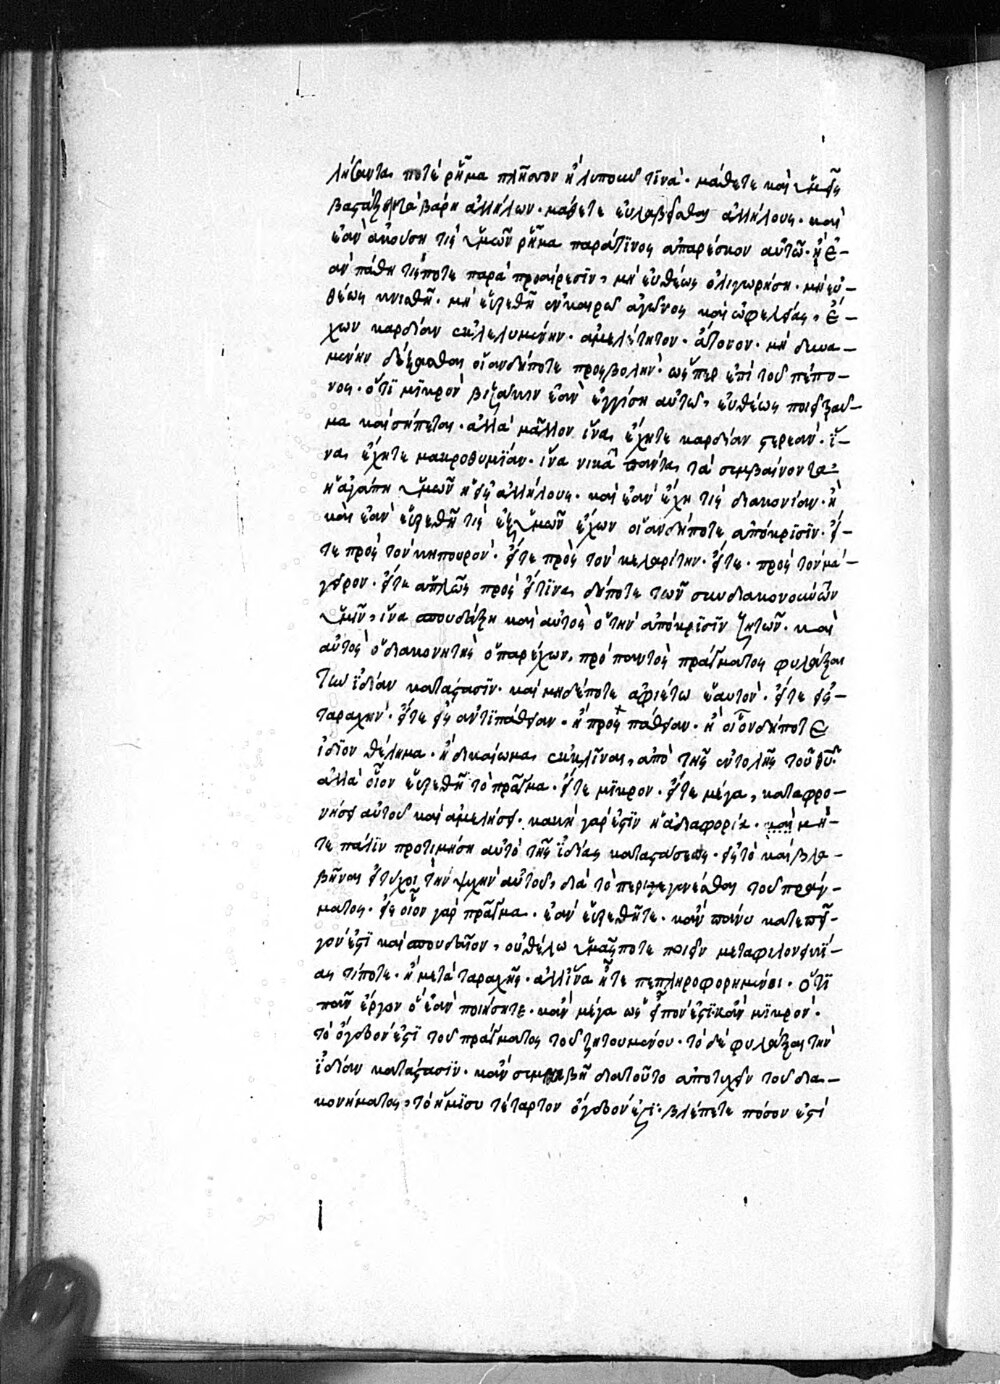 λήσαντα ποτὲ ρῆμα πλῆττον ἢ λυποῦν τινά· μάθετε καὶ ὑμεῖς
βαστάζειν τὰ βάρη ἀλλήλων· μάθετε εὐλαβεῖσθαι ἀλλήλους· καὶ
ἐὰν ἀκούσῃ τίς ὑμῶν ρῆμα παρά τινος ἀπαρέσκον αὐτῶ· ἢ ἐ-
ὰν πάθῃ τίποτε παρὰ προαίρεσιν, μὴ εὐθέως ὀλιγωρήσῃ· μὴ εὐ-
θέως κινιθῇ· μὴ εὑρεθῇ ἐν καιρῶ ἀγῶνος καὶ ὠφελείας, ἔ-
χων καρδίαν ἐκλελυμένην· ἀμελέτητον· ἄτονον· μὴ δυνα-
μένην δέξασθαι οἱανδήποτε προσβολήν· ὥσπερ ἐπὶ τοῦ πέπο-
νος· ὅτι μικρὸν βιζάκιν ἐὰν ἐγγίσῃ αὐτῶ, εὐθέως ποιεῖ τραῦ-
μα καὶ σήπεται· ἀλλὰ μᾶλλον ἵνα ἔχητε καρδίαν στερεάν· ἵ-
να ἔχητε μακροθυμίαν· ἵνα νικᾶ πάντα τὰ συμβαίνοντα
ἡ ἀγάπη ὑμῶν ἡ εἰς ἀλλήλους· καὶ ἐὰν ἔχῃ τίς διακονίαν· ἢ
καὶ ἐὰν εὑρεθῇ τίς ἐξ ὑμῶν ἔχων οἱανδήποτε ἀπόκρισιν· εἴ-
τε πρὸς τὸν κηπουρόν· εἴτε πρὸς τὸν κελαρίτην· εἴτε· πρὸς τὸν μά-
γειρον· εἴτε ἁπλῶς πρὸς εἴτινα δήποτε τῶν συνδιακονούντων
ὑμῖν, ἵνα σπουδάξῃ καὶ αὐτὸς ὁ τὴν ἀπόκρισιν ζητῶν· καὶ
αὐτὸς ὁ διακονητὴς ὁ παρέχων, πρὸ παντὸς πράγματος φυλάξαι
τὴν ἰδίαν κατάστασιν· καὶ μηδέποτε ἀφιέτω ἑαυτόν· εἴτε εἰς
ταραχήν· εἴτε εἰς ἀντιπάθειαν· ἢ προσπάθειαν· ἢ οἱονδήποτε
ἴδιον θέλημα· ἢ δικαίωμα ἐκκλῖναι, ἀπὸ τῆς ἐντολῆς τοῦ θυ·
ἀλλὰ οἷον εὑρεθῇ τὸ πρᾶγμα· εἴτε μικρὸν· εἴτε μέγα, καταφρο-
νῆσαι αὐτοῦ καὶ ἀμελῆσαι· κακὴ γάρ ἐστιν ἡ ἀδιαφορία· καὶ μή-
τε πάλιν προτιμήσῃ αὐτὸ τῆς ἰδίας καταστάσεως· εἰς τὸ καὶ βλα-
βῆναι εἰ τύχοι τὴν ψυχὴν αὐτοῦ, διὰ τὸ περιγενέσθαι τοῦ πράγ-
ματος· εἰς οἷον γὰρ πρᾶγμα· ἐὰν εὑρεθῆτε· κἂν πάνυ κατεπεῖ-
γον ἐστὶ καὶ σπουδαῖον, οὐ θέλω ὑμᾶς ποτε ποιεῖν μετὰ φιλονεικί-
ας τίποτε· ἢ μετὰ ταραχῆς· ἀλλ' ἵνα ἦτε πεπληροφορημένοι· ὅτι
πᾶν ἔργον ὃ ἐὰν ποιήσητε· κἂν μέγα ὡς εἶπον ἐστὶ· κἂν μικρόν·
τὸ ὄγδοόν ἐστι τοῦ πράγματος τοῦ ζητουμένου· τὸ δὲ φυλάξαι τὴν
ἰδίαν κατάστασιν· κἂν συμβῇ διὰ τοῦτο ἀποτυχεῖν τοῦ δια-
κονήματος, τὸ ἥμισυ τέταρτον ὄγδοόν ἐστι· βλέπετε πόσον ἐστὶ